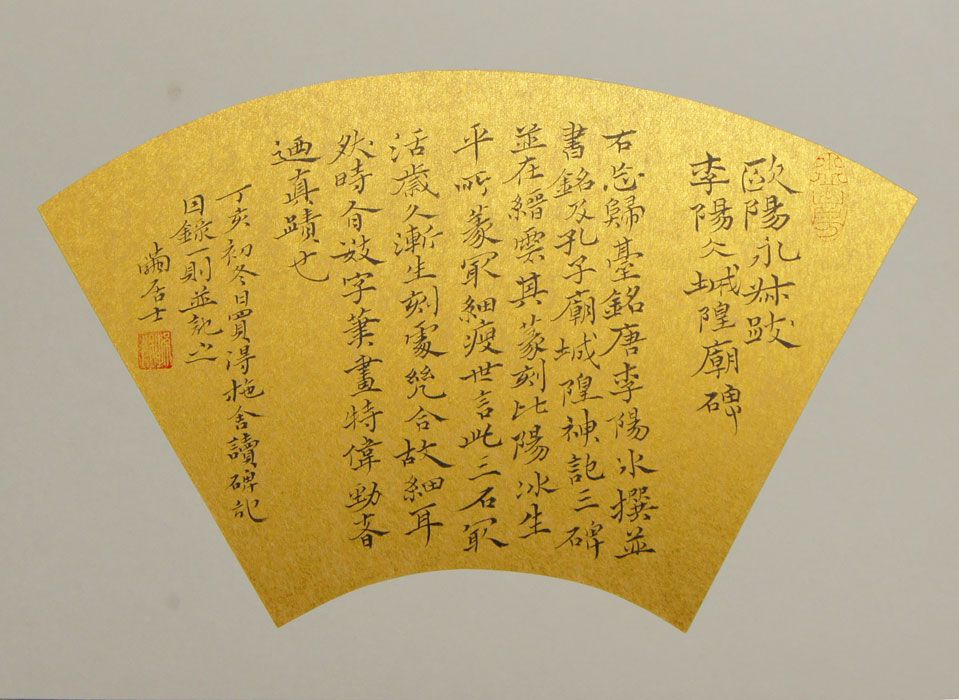 歐陽永叔跋
李陽仌城隍廟碑
右忘歸臺銘唐李陽冰撰並
書銘及孔子廟城隍神記三碑
並在縉雲其篆刻比陽冰生
平所篆冣細瘦世言此三石冣
活歲久漸生刻處幾合故細耳
然時有數字筆畫特偉勁者
迺真蹟也
丁亥初冬日買得拖舍讀碑記
因錄一則並記之
居士